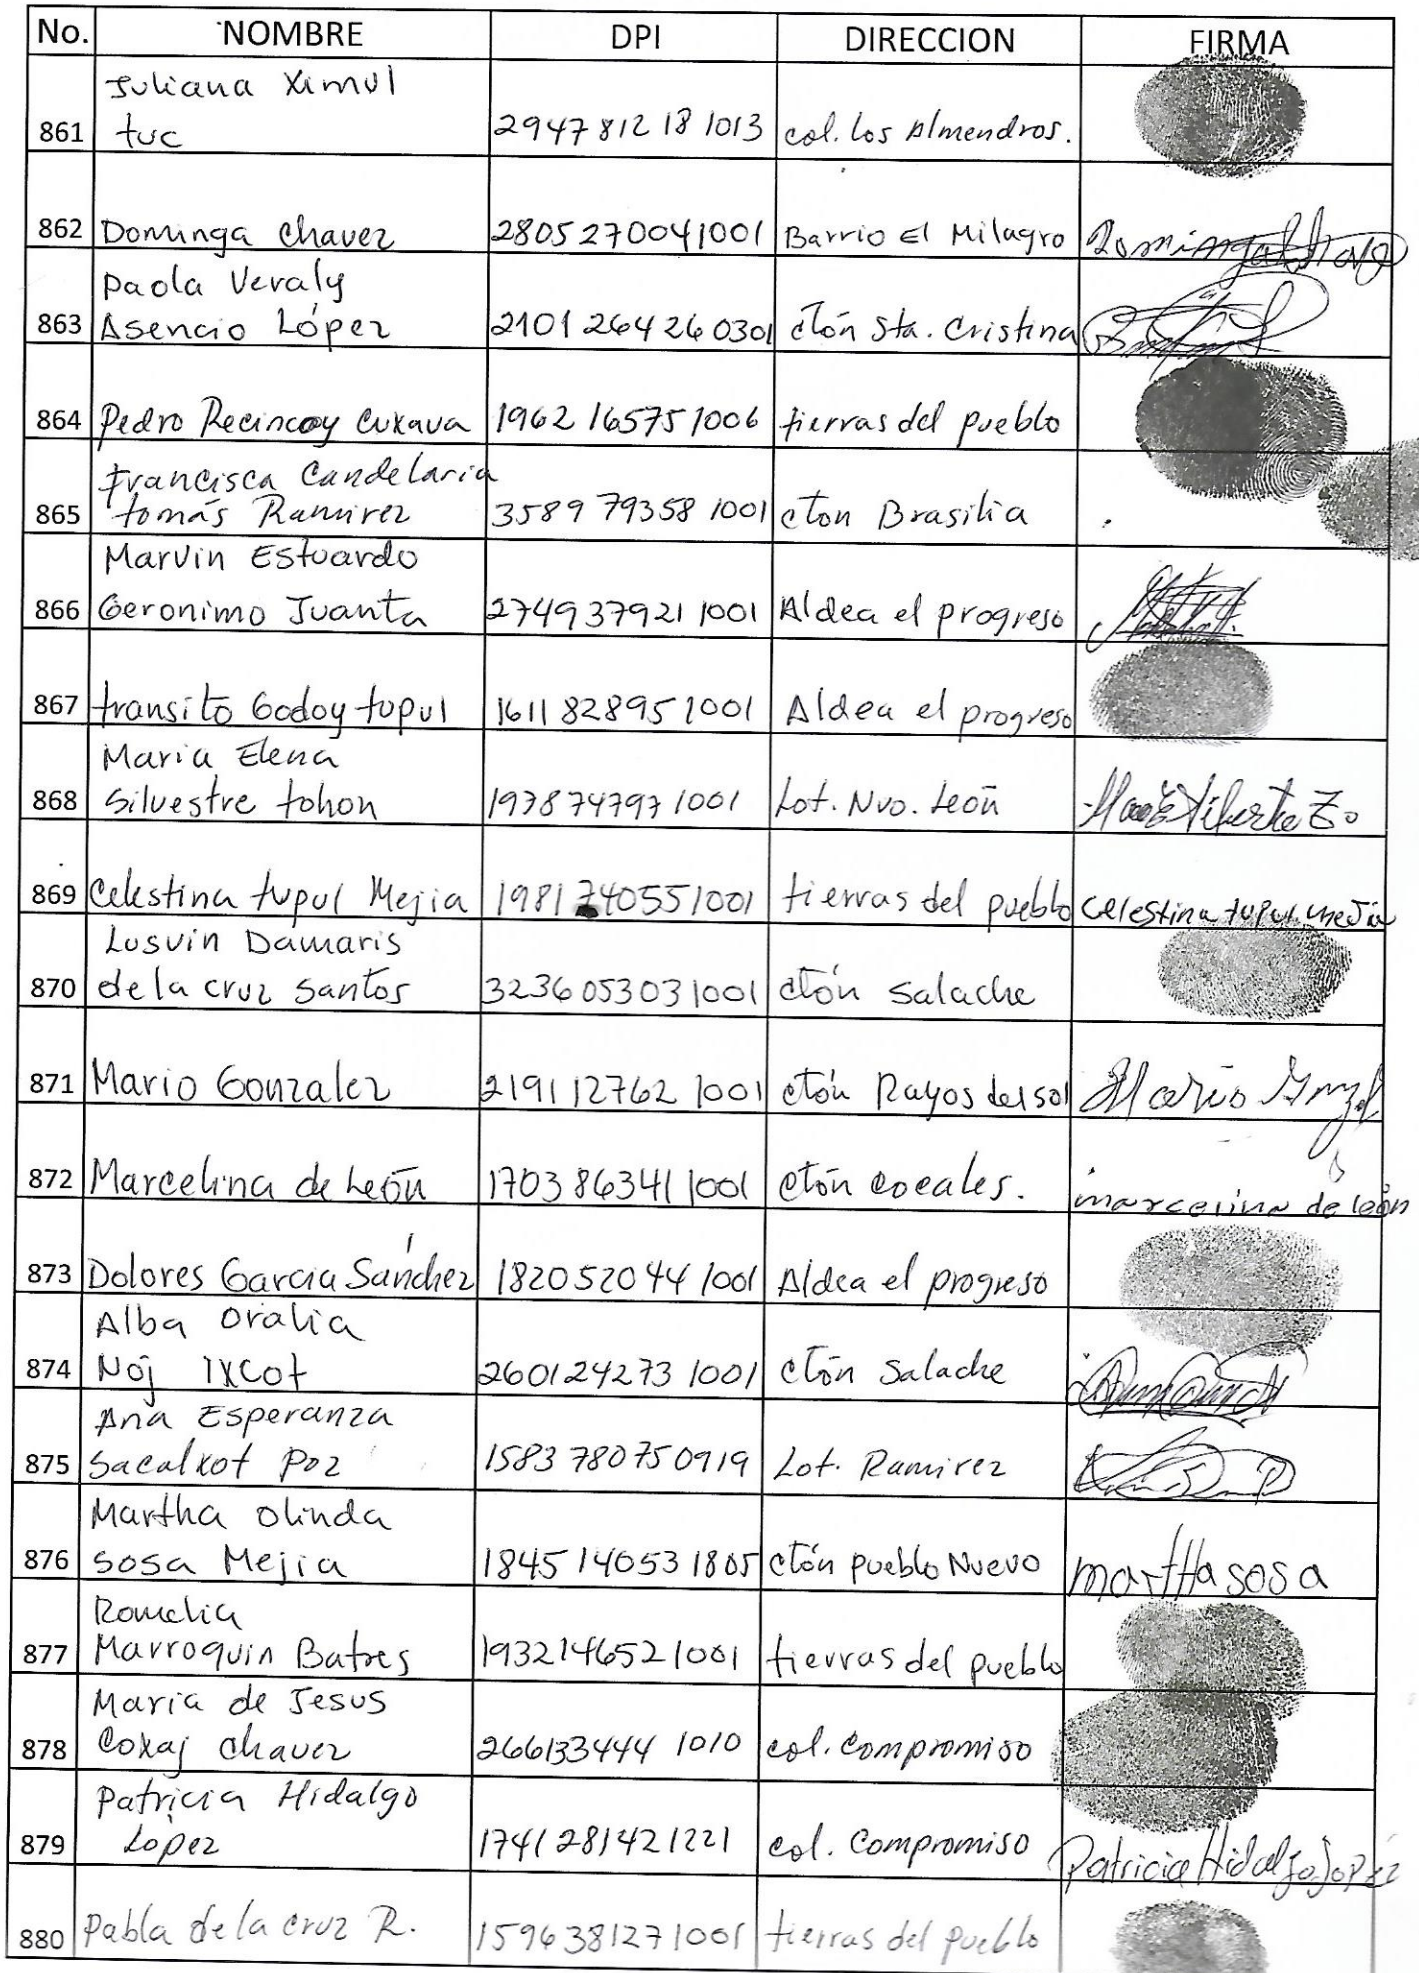 No. NOMBRE DPI DIRECCION FIRMA
Juliana Ximul
861 tuc 2947 812 18 1013 col. los Almendros.
862 Dominga Chavez 2805 270041001 Barrio El Milagro
Paola Veraly
863 Asencio López 2101 264 26 0301 ctón Sta. Cristina
864 Pedro Recincoy Cuxava 1962 16575 1006 tierras del pueblo
Francisca Candelaria
865 tomás Ramirez 3589 79358 1001 cton Brasilia
Marvin Estuardo
866 Geronimo Juanta 2749 37921 1001 Aldea el progreso
867 transito Godoy tupul 1611 82895 1001 Aldea el progreso
Maria Elena
868 Silvestre tohon 1978 74797 1001 Lot. Nvo. León
869 Celestina tupul Mejia 1981 740551001 tierras del pueblo celestina tupul mejia
Lusvin Damaris
870 de la cruz Santos 3236 053031001 ctón Salache
871 Mario Gonzalez 2191 12762 1001 ctón Rayos del sol
872 Marcelina de León 1703 86341 1001 ctón cocales. marcelina de león
873 Dolores Garcia Sánchez 1820 52044 1001 Aldea el progreso
Alba Oralia
874 Noj IXCot 2601 24273 1001 ctón Salache
Ana Esperanza
875 Sacalxot Poz 1583 78075 0919 Lot. Ramirez
Martha Olinda
876 Sosa Mejia 1845 14053 1805 ctón pueblo Nuevo martha sosa
Romelia
877 Marroquin Batres 1932146521001 tierras del pueblo
Maria de Jesus
878 Coxaj Chavez 266133444 1010 col. Compromiso
Patricia Hidalgo
879 López 1741 281421221 col. Compromiso Patricia Hidalgo Lopez
880 Pabla de la cruz R. 1596381271001 tierras del pueblo